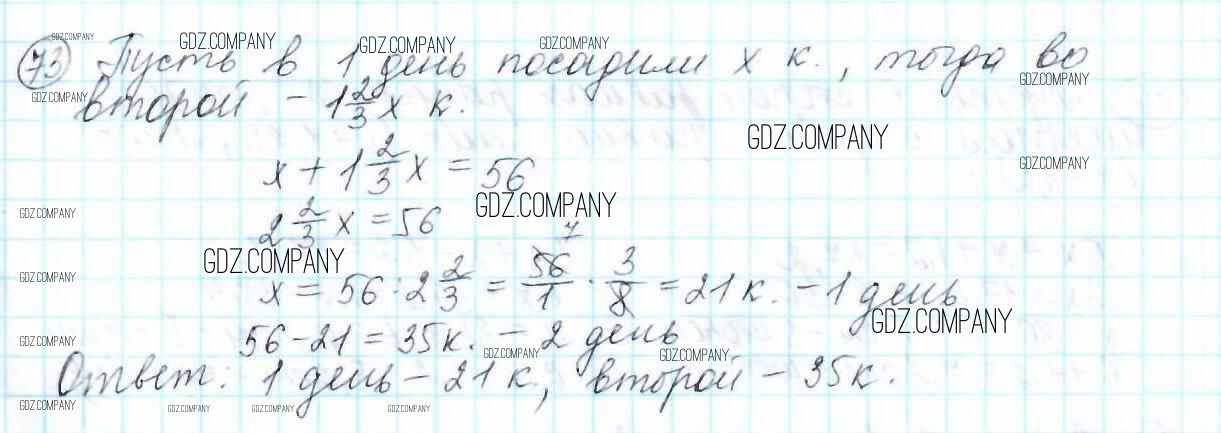 GDZ.COMPANY GDZ.COMPANY GDZ.COMPANY GDZ.COMPANY
73 Пусть в 1 день посадили x к., тогда во
GDZ.COMPANY
GDZ.COMPANY второй - 1 2/3 x к.
GDZ.COMPANY
x + 1 2/3 x = 56
GDZ.COMPANY
GDZ.COMPANY GDZ.COMPANY
2 2/3 x = 56
GDZ.COMPANY
GDZ.COMPANY x = 56 : 2 2/3 = 56/1 7 · 3/8 = 21 к. - 1 день
GDZ.COMPANY
GDZ.COMPANY 56 - 21 = 35 к. - 2 день
GDZ.COMPANY GDZ.COMPANY
Ответ: 1 день - 21 к, второй - 35 к.
GDZ.COMPANY GDZ.COMPANY GDZ.COMPANY GDZ.COMPANY